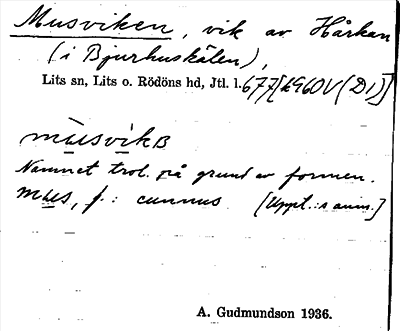 Musviken, vik av Hårkan
(i Bjurhuskälen),
Lits sn, Lits o. Rödöns hd, Jtl. l. 677[k960V(D1)]
mùsvikʙ
Namnet trol. på grund av formen.
mus, f.: cunnus [Uppt.:s anm.]
A. Gudmundson 1936.